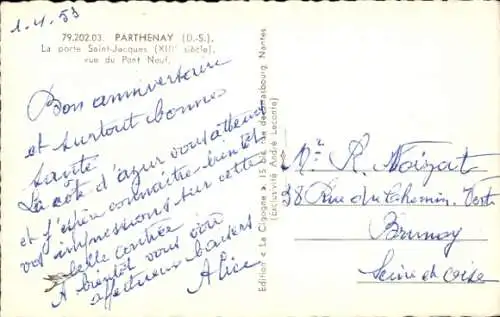 1.4.53
79.202.03. PARTHENAY (D.-S.).
La porte Saint-Jacques (XIIIe siècle),
vue du Pont Neuf.
Bon anniversaire
et surtout bonne
santé
La côte d'azur vous attend
et j'espère connaître bientôt
vos impressions sur cette
belle contrée
A bientôt vous voir
affectueux baisers
Alice
Edition « La Cigogne », 15 bis, rue de Strasbourg, Nantes
(Exclusivité André Leconte)
Mr R.
38 Rue du Chemin Vert
Brunoy
Seine et Oise